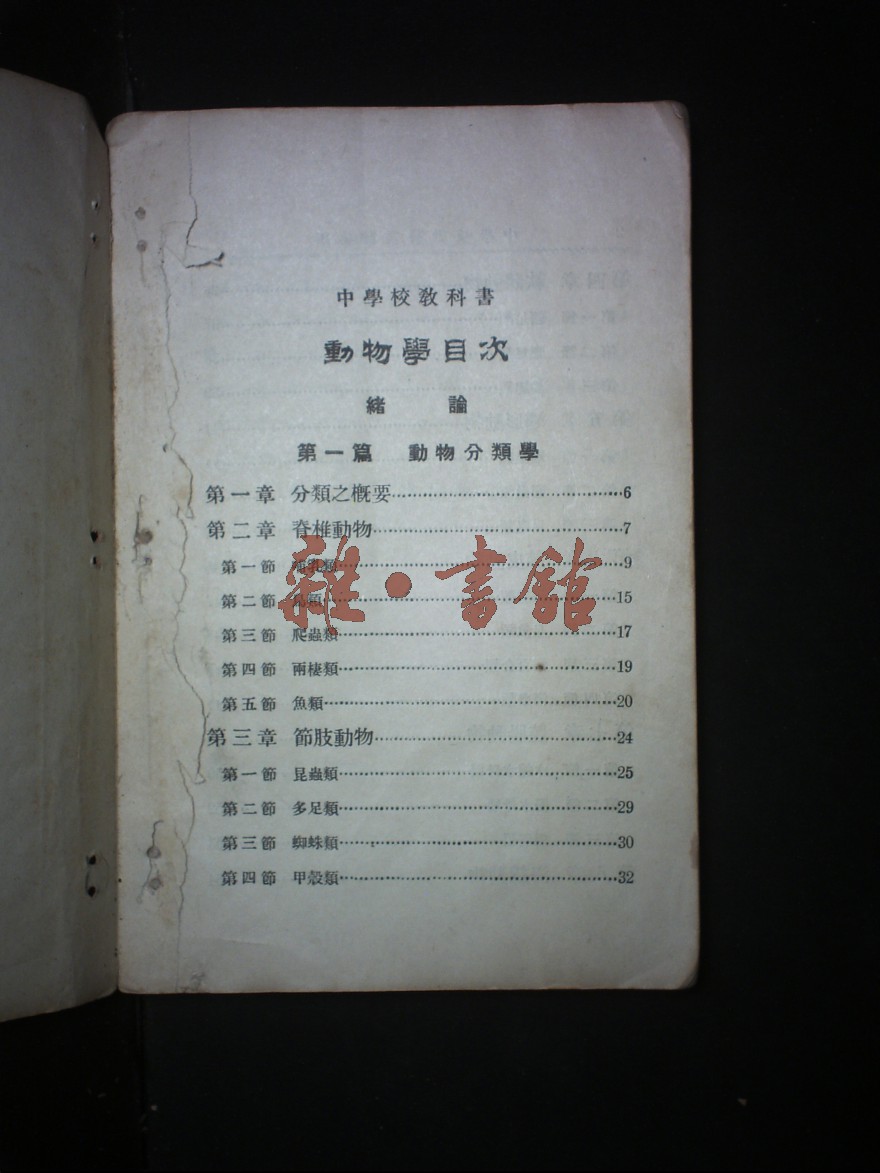 中學校教科書
動物學目次
緒論
第一篇 動物分類學
第一章 分類之概要……………………………6
第二章 脊椎動物……………………………7
第一節 哺乳類……………………………9
第二節 鳥類……………………………15
第三節 爬蟲類……………………………17
第四節 兩棲類……………………………19
第五節 魚類……………………………20
第三章 節肢動物……………………………24
第一節 昆蟲類……………………………25
第二節 多足類……………………………29
第三節 蜘蛛類……………………………30
第四節 甲殼類……………………………32
雜·書館